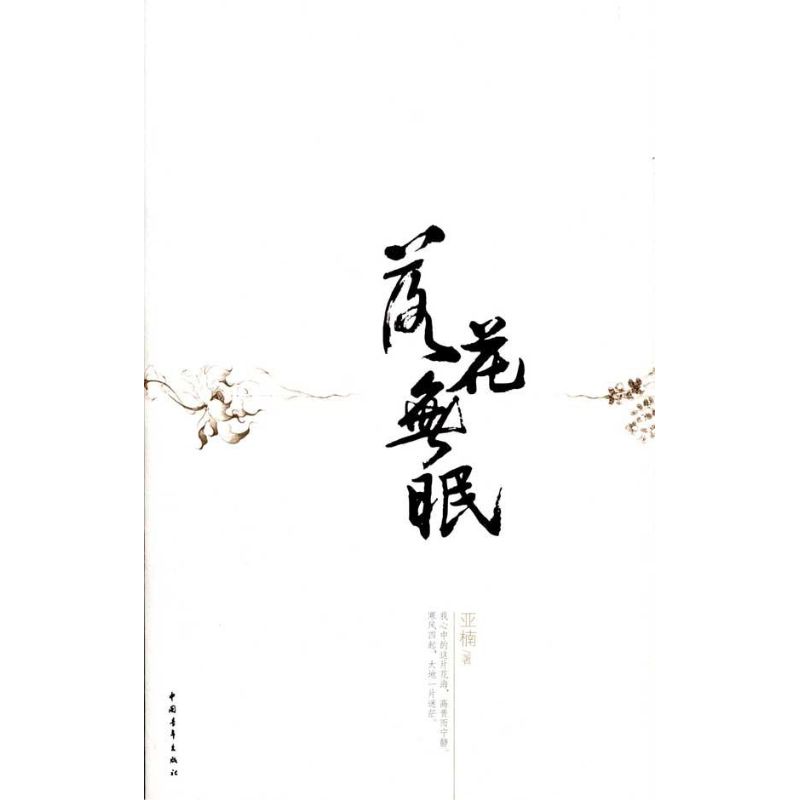 落花無眠
亚楠 著
我心中的这片花海，高贵而宁静。
寒风四起，大地一片迷茫。
中国青年出版社